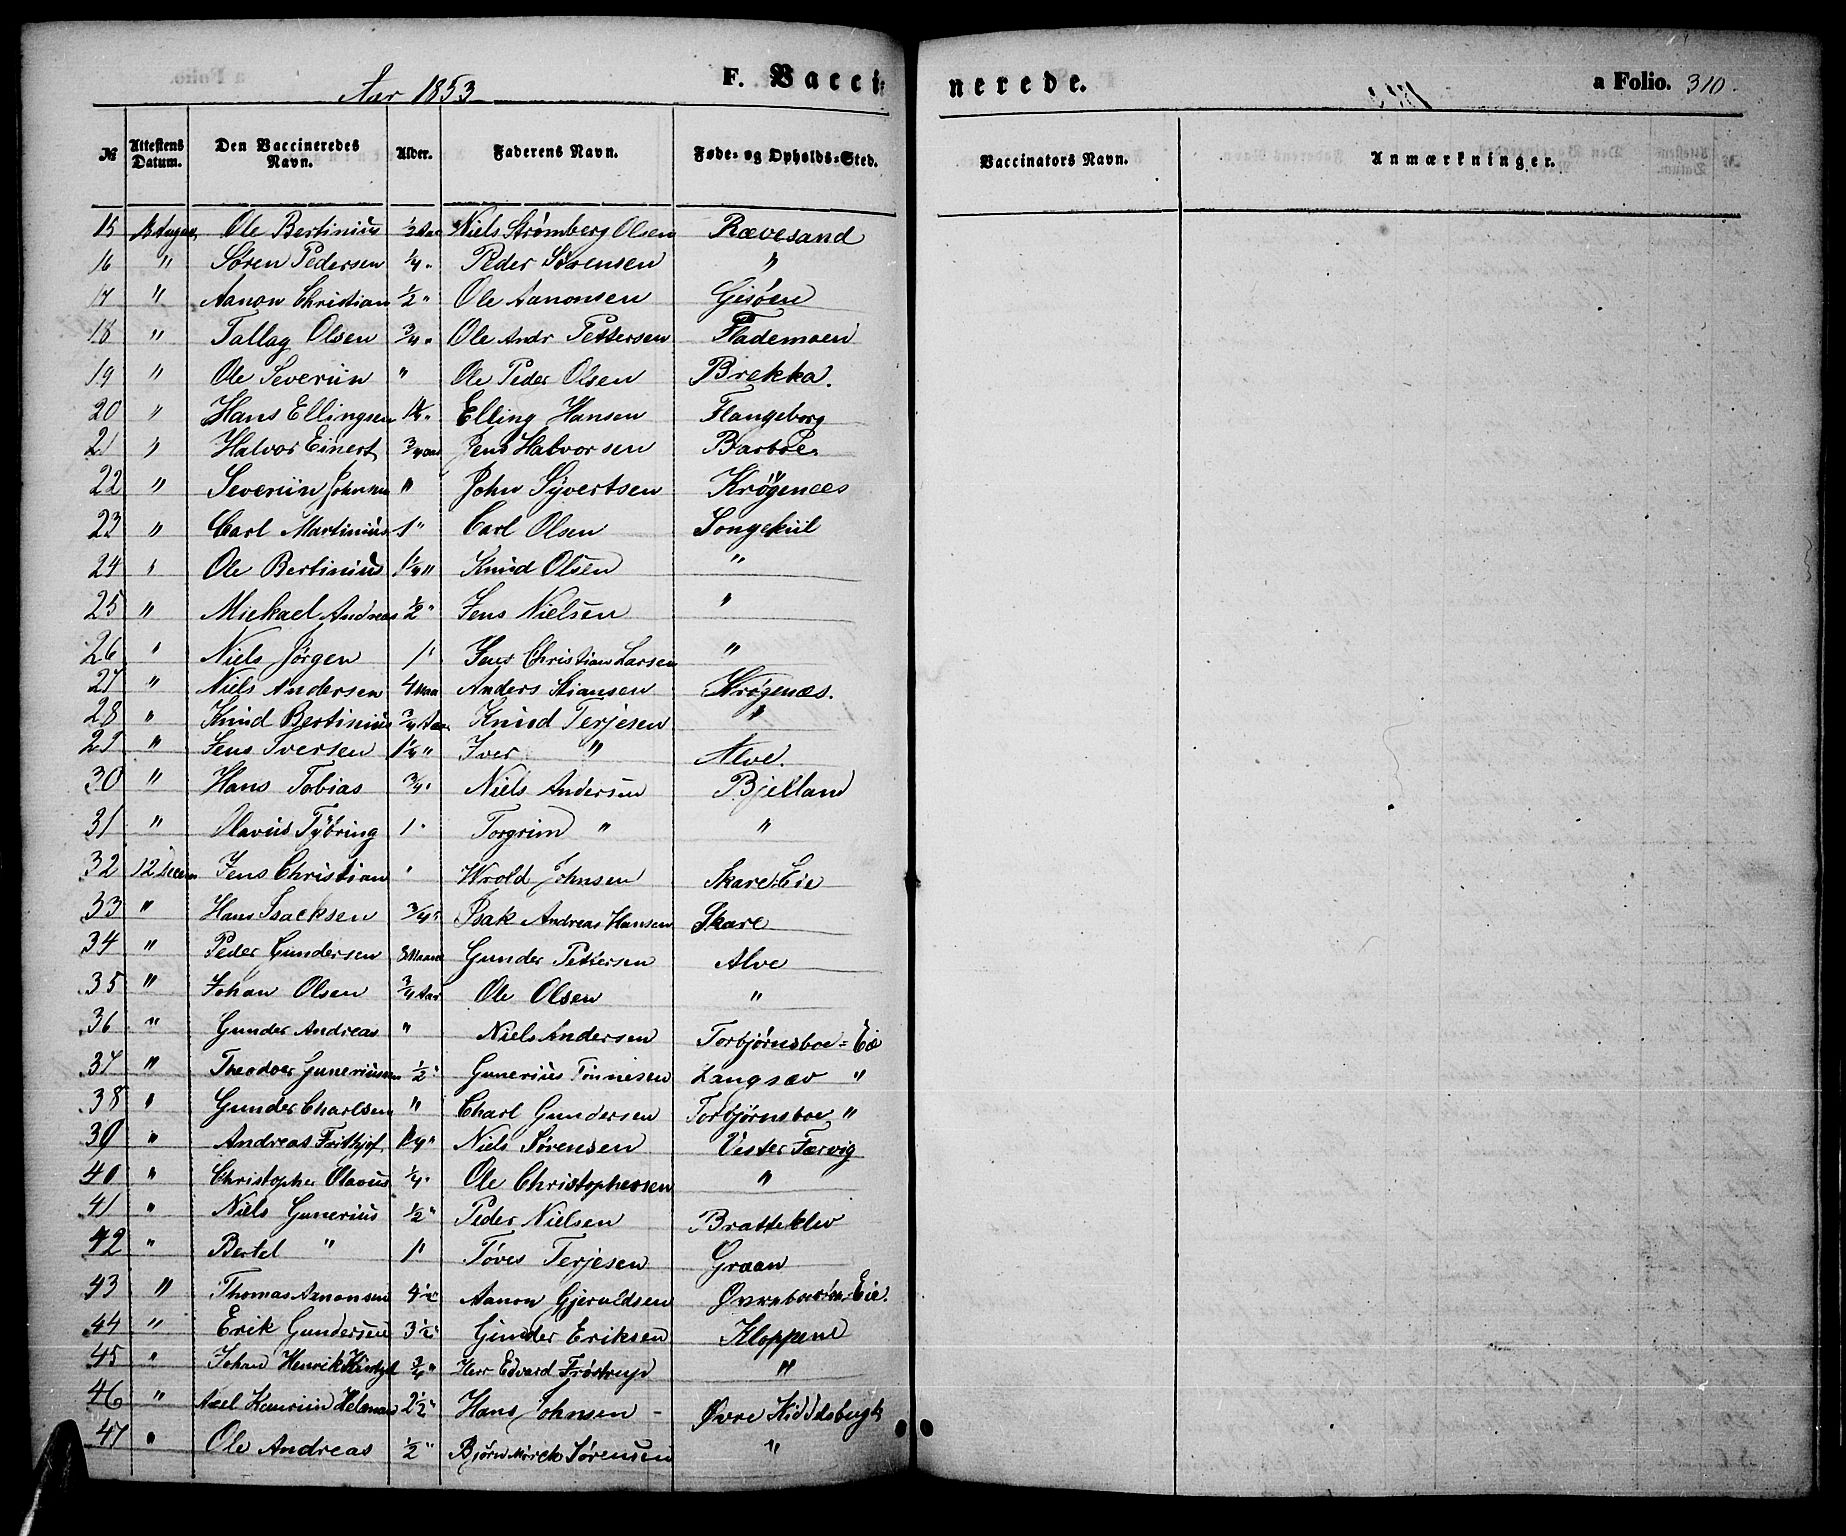 Aar 1853 F. Vacci-
nerede. a Folio. 310.
№ Attestens Datum. Den Vaccineredes Navn. Alder. Faderens Navn. Føde- og Opholds-Sted. Vaccinators Navn. Anmærkninger.
15 Ole Bertinius 1/2 Aar Niels Strømberg Olsen Rævesand
16 " Søren Pedersen 1/4 " Peder Sørensen "
17 " Aanon Christian 1/2 " Ole Aanonsen Gisøen
18 " Tallag Olsen 3/4 " Ole Andr Pettersen Flademoen
19 " Ole Severiin " Ole Peder Olsen Brekka.
20 " Hans Ellingsen Elling Hansen Flangeborg
21 " Halvor Einert 3/4 Aar Jens Halvorsen Barboe
22 " Severiin Johnsen " John Syvertsen Krøgenæs
23 " Carl Martinius 1 " Carl Olsen Songekiil
24 " Ole Bertinius 1 1/4 " Knud Olsen "
25 " Mickael Andreas 1/2 " Jens Nielsen "
26 " Niels Jørgen 1 " Jens Christian Larsen "
27 " Niels Andersen 4 Maa Anders Stiansen Krøgenæs.
28 " Knud Bertinius 3/4 Aar Knud Terjesen "
29 " Jens Iversen 1 1/4 " Iver " Alve.
30 " Hans Tobias 3/4 " Niels Andersen Bjelland
31 " Olavus Tybring 1 " Torgrim " "
32 12 Decem Jens Christian " Wrold Johnsen Skare Eie
33 " Hans Isacksen 3/4 " Isak Andreas Hansen Skare
34 " Peder Gundersen 8 Maand Gunder Pettersen Alve
35 " Johan Olsen 3/4 Aar Ole Olsen "
36 " Gunder Andreas " Niels Andersen Torbjørnsboe = Eie
37 " Theodor Guneriusen 1/2 " Gunerius Tønnesen Langsæv "
38 " Gunder Charlsen " Charl Gundersen Torbjørnsboe "
39 " Andreas Frithjof 1 1/4 " Niels Sørensen Vester Færvig
40 " Christopher Olavus 1/4 " Ole Christophersen "
41 " Niels Gunerius 1/2 " Peder Nielsen Bratteklev
42 " Bertel " 1 " Tøves Terjesen Graan
43 " Thomas Aanonsen 4 1/2 Aanon Gjeruldsen Eie.
44 " Erik Gundersen 3 1/2 " Gunder Eriksen Kloppene
45 " Johan Henrik 3/4 " Herr Edvard Frøstrup "
46 " Axel 2 1/2 " Hans Johnsen - Øvre
47 " Ole Andreas 1/2 " Bjørn Mørck Sørensen "